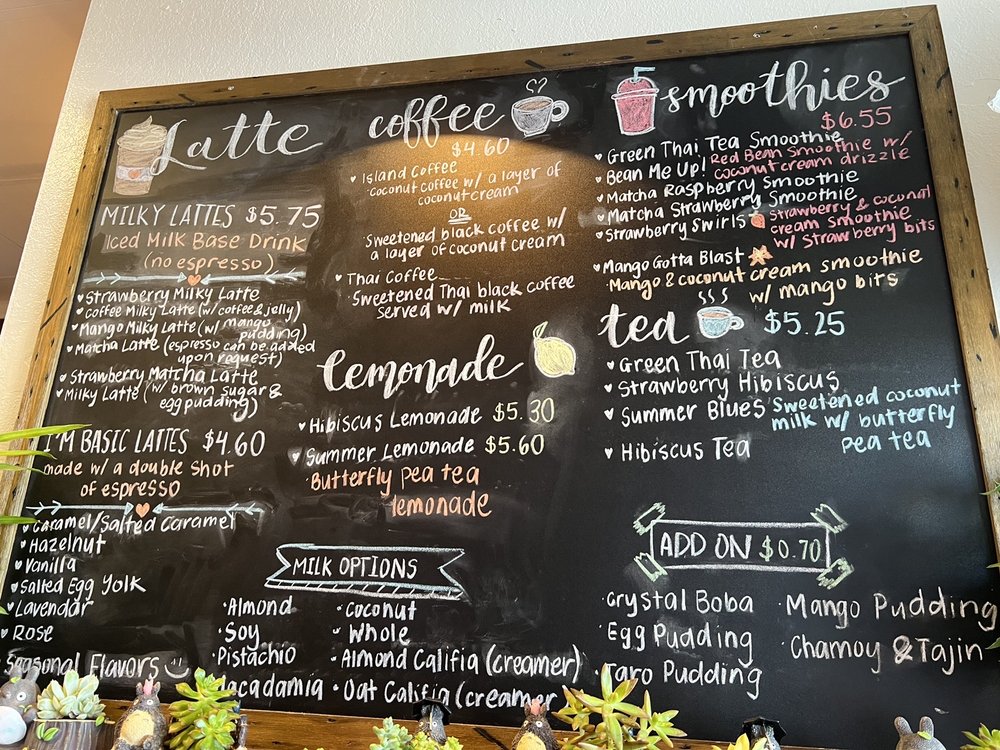 Latte
MILKY LATTES $5.75
Iced Milk Base Drink
(no espresso)
Strawberry Milky Latte
Coffee Milky Latte (w/ coffee & jelly)
Mango Milky Latte (w/ mango
pudding)
Matcha Latte (espresso can be added
upon request)
Strawberry Matcha Latte
Milky Latte (w/ brown sugar &
egg pudding)
I'M BASIC LATTES $4.60
made w/ a double shot
of espresso
Caramel/Salted Caramel
Hazelnut
Vanilla
Salted Egg Yolk
Lavendar
Rose
Seasonal Flavors
coffee
$4.60
Island Coffee
·Coconut coffee w/ a layer of
coconut cream
OR
·Sweetened black coffee w/
a layer of coconut cream
Thai Coffee
·Sweetened Thai black coffee
served w/ milk
lemonade
Hibiscus Lemonade $5.30
Summer Lemonade $5.60
·Butterfly pea tea
lemonade
MILK OPTIONS
·Almond
·Soy
·Pistachio
Macadamia
·Coconut
·Whole
·Almond Califia (creamer)
·Oat Califia (creamer
smoothies
$6.55
Green Thai Tea Smoothie
Bean Me Up! Red Bean Smoothie w/
coconut cream drizzle
Matcha Raspberry Smoothie
Matcha Strawberry Smoothie
Strawberry Swirls Strawberry & coconut
cream smoothie
w/ strawberry bits
Mango Gotta Blast
·Mango & coconut cream smoothie
w/ mango bits
tea $5.25
Green Thai Tea
Strawberry Hibiscus
Summer Blues ·Sweetened coconut
milk w/ butterfly
pea tea
Hibiscus Tea
ADD ON $0.70
·Crystal Boba
·Egg Pudding
·Taro Pudding
·Mango Pudding
·Chamoy & Tajin